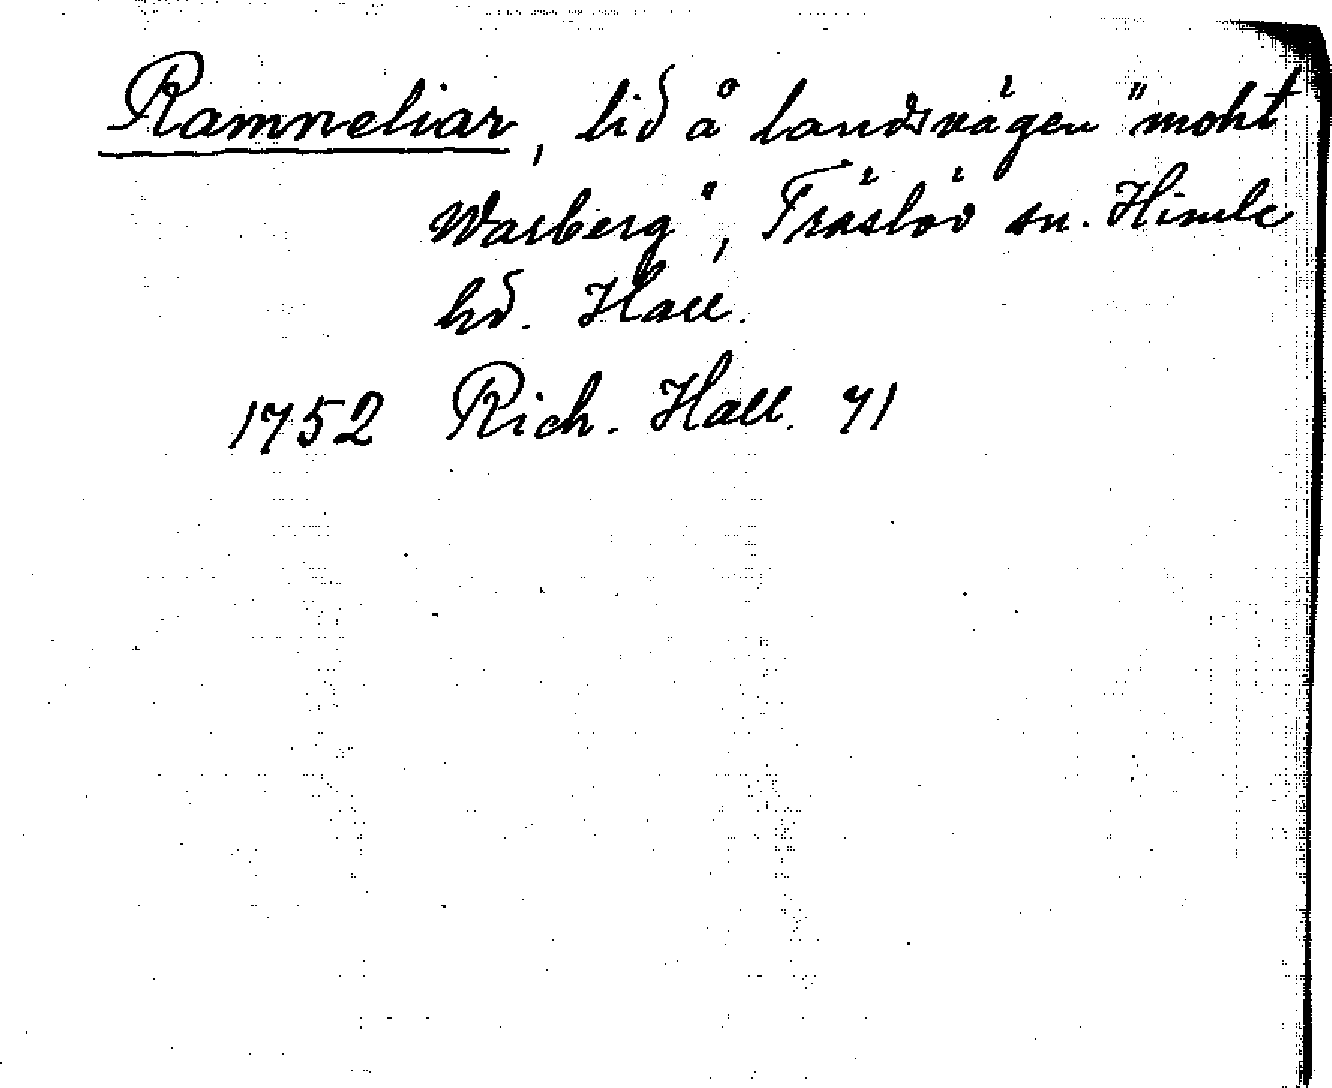 Ramneliar, lid å landsvägen "moht
Warberg", Träslöv sn. Himle
hd. Hall.
1752 Rich. Hall. 71